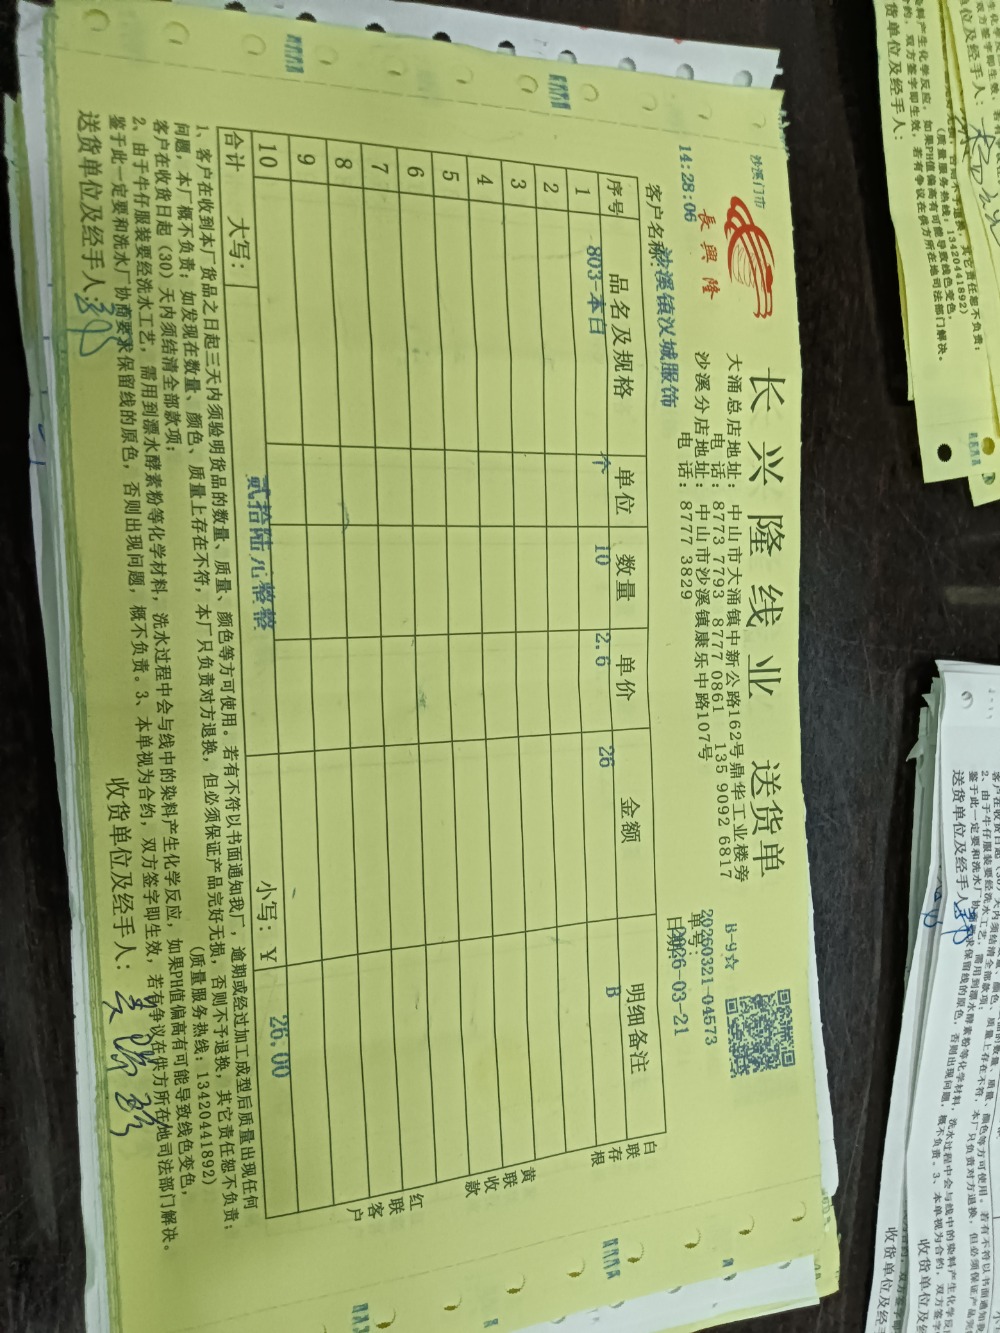 沙溪门市
長興隆
长兴隆线业 送货单
大涌总店地址：中山市大涌镇中新公路162号鼎华工业楼旁
电 话：8773 7793 8777 0861 135 9092 6817
沙溪分店地址：中山市沙溪镇康乐中路107号
电 话：8777 3829
B-9☆
单号：20260321-04573
日期：2026-03-21
14:28:06
客户名称：沙溪镇汉城服饰
序号 品名及规格 单位 数量 单价 金额 明细备注
1 803-本白 个 10 2.6 26 B
2
3
4
5
6
7
8
9
10
合计 大写： 贰拾陆元整整 小写：￥ 26.00
白联存根
黄联收款
红联客户
1、客户在收到本厂货品之日起三天内须验明货品的数量、质量、颜色等方可使用。若有不符以书面通知我厂，逾期或经过加工成型后质量出现任何
问题，本厂概不负责；如发现在数量、颜色、质量上存在不符，本厂只负责对方退换，但必须保证产品完好无损，否则不予退换，其它责任恕不负责；
客户在收货日起（30）天内须结清全部款项； (质量服务热线：13420441892)
2、由于牛仔服装要经洗水工艺，需用到漂水酵素粉等化学材料，洗水过程中会与线中的染料产生化学反应，如果PH值偏高有可能导致线色变色，
鉴于此一定要和洗水厂协商要求保留线的原色，否则出现问题，概不负责。3、本单视为合约，双方签字即生效，若有争议在供方所在地司法部门解决。
送货单位及经手人： 收货单位及经手人：